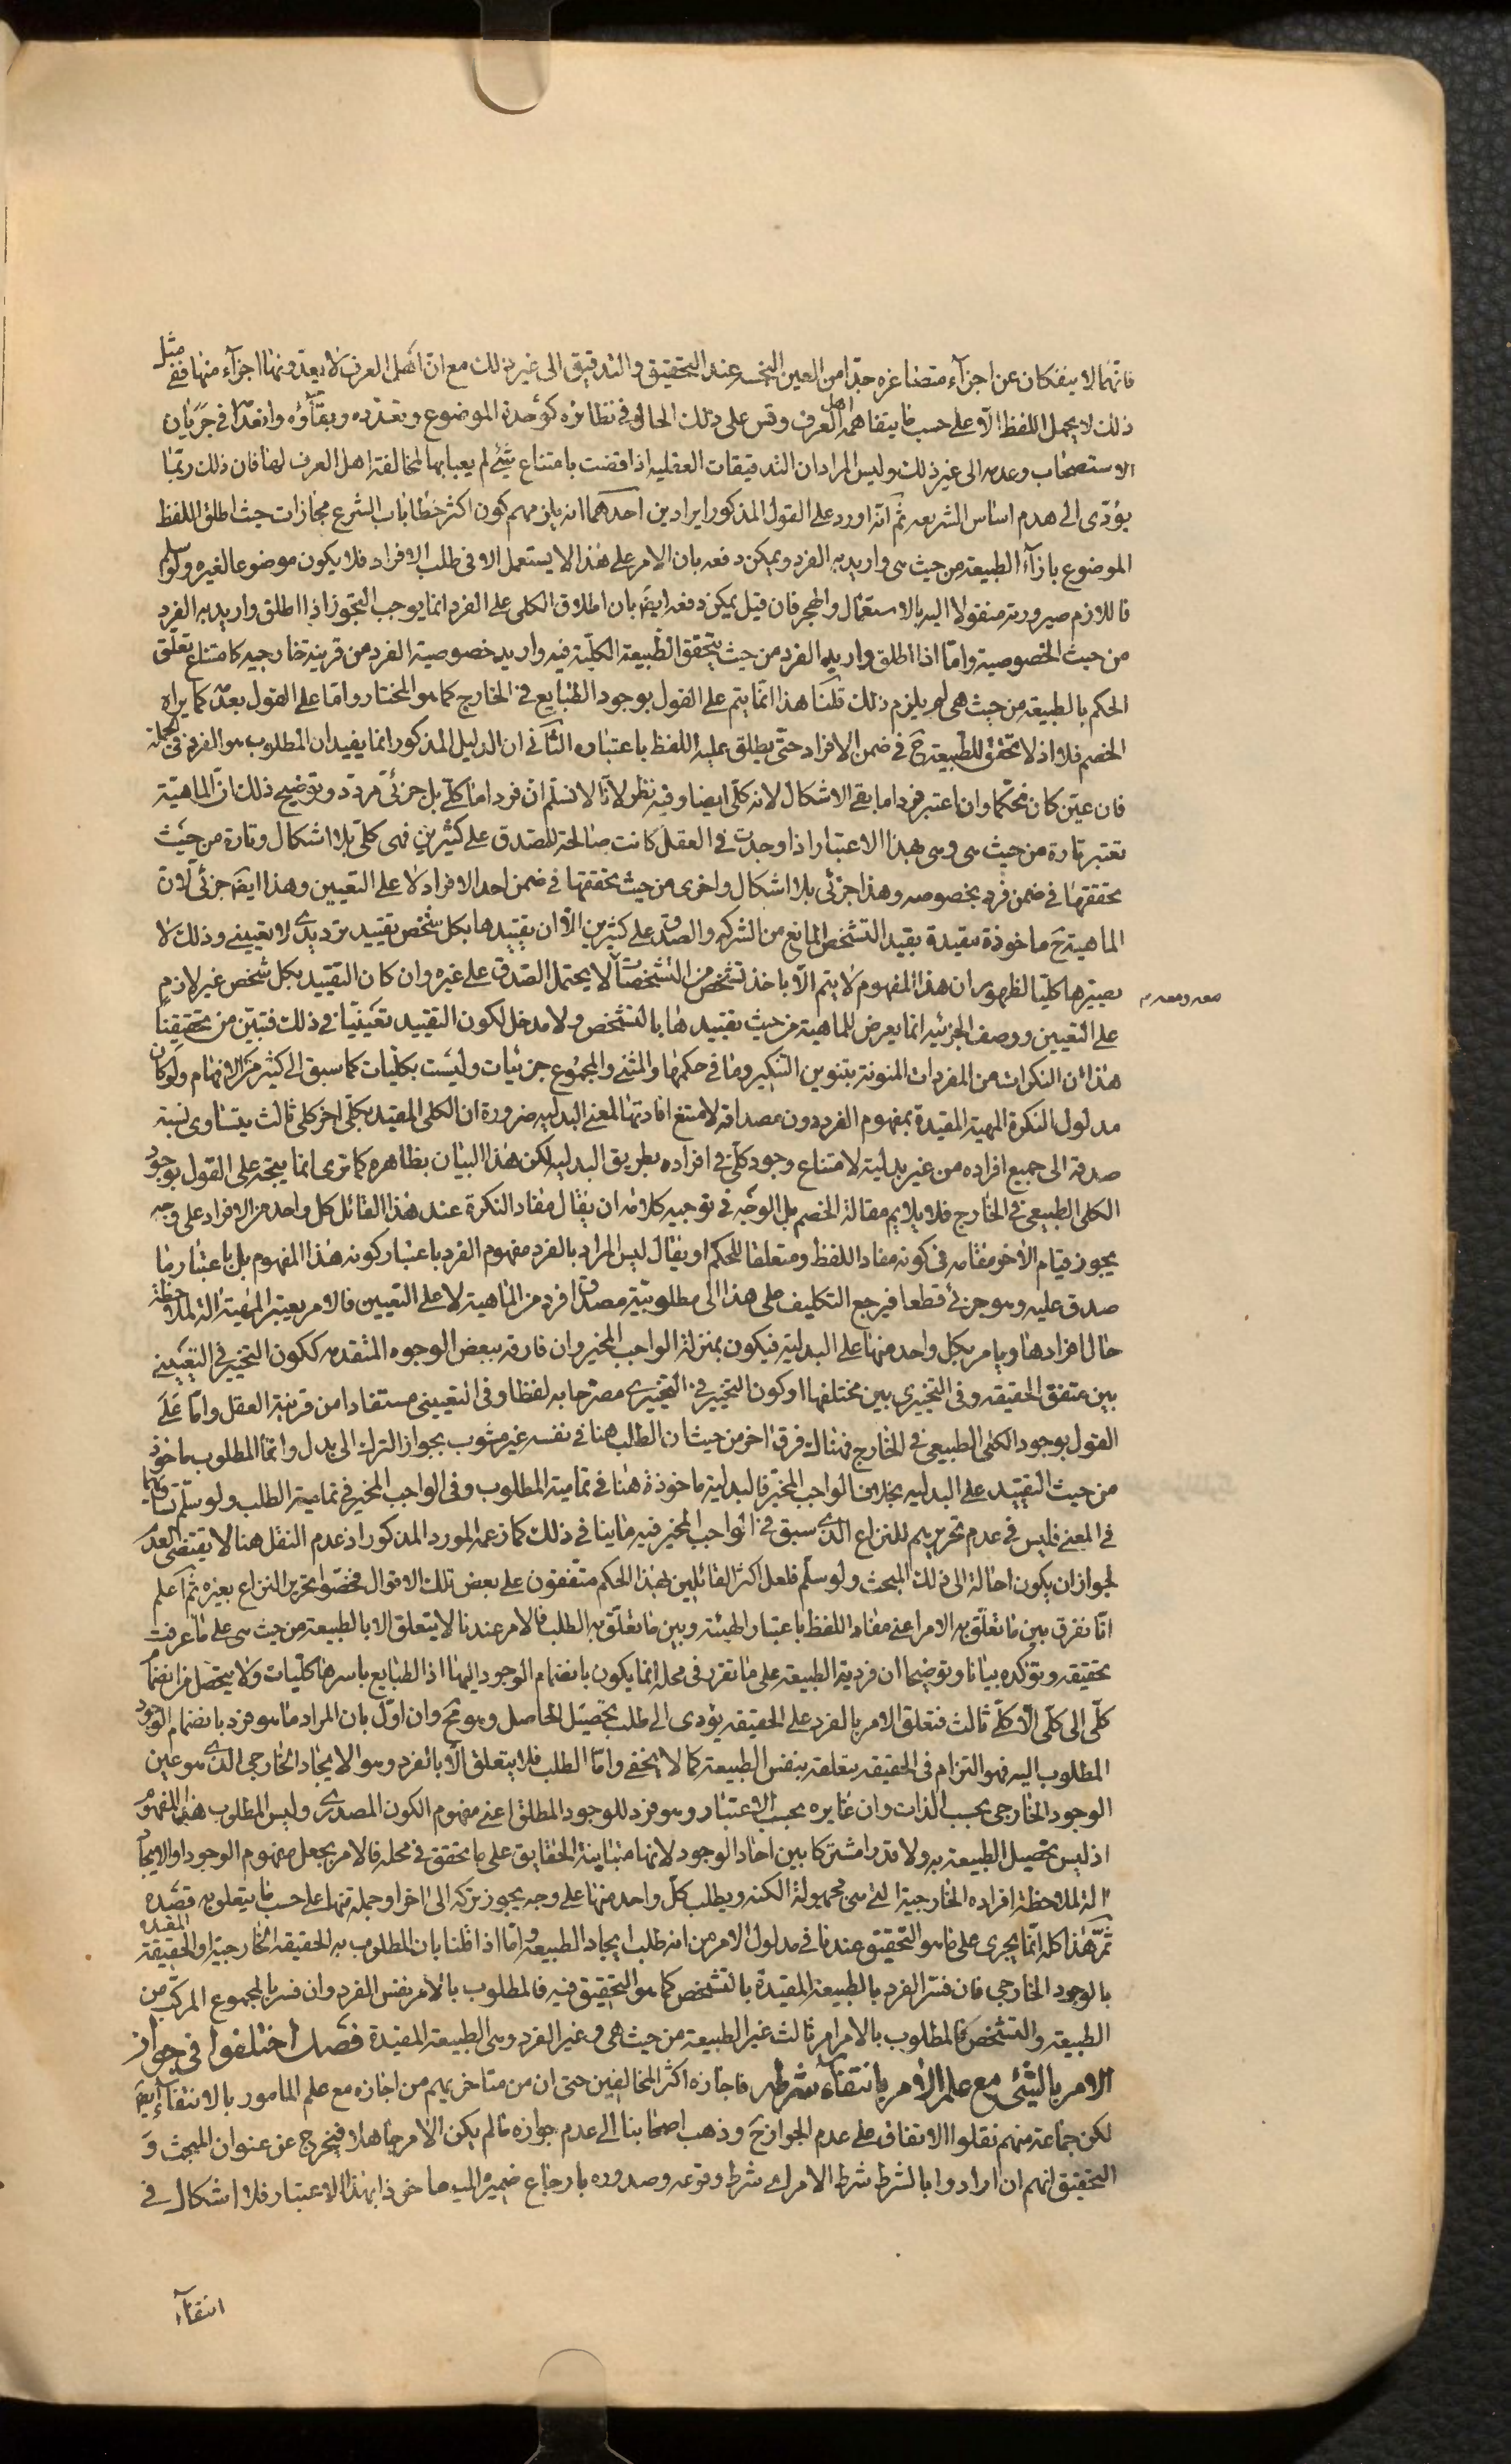 فانهما لا ينفكان عن اجزآء متصاغره جدّا من العين النجسه عند التحقيق والتدقيق الى غير ذلك مع انّ اهل العرف لا يعدونها اجزآء منها ففى مثل
ذلك لا يحمل اللفظ الّا على حسب ما يتفاهمه اهل العرف وقس على ذلك الحال فى نظائره كوحدة الموضوع وتعدّده وبقآؤه وانعدامه فى جريان
الاستصحاب وعدمه الى غير ذلك وليس المراد ان التدقيقات العقليه اذا قضت بامتناع شئ لم يعبا بها لمخالفة اهل العرف لها فان ذلك ربّما
يؤدّى الى هدم اساس الشريعه ثمّ انّه اورد على القول المذكور ايرادين احدهما انه يلزمهم كون اكثر خطابات الشرع مجازات حيث اطلق اللفظ
الموضوع بازآء الطبيعة من حيث هى واريد به الفرد ويمكن دفعه بان الامر على هذا لا يستعمل الا فى طلب الافراد فلا يكون موضوعا لغيره ولو سلم
فاللازم صيرورته منقولا اليه بالاستعمال والهجر فان قيل يمكن دفعه ايضا بان اطلاق الكلى على الفرد انما يوجب التجوز اذا اطلق واريد به الفرد
من حيث الخصوصية وامّا اذا اطلق واريد الفرد من حيث يتحقق الطبيعة الكليّة فيه واريد خصوصية الفرد من قرينة خارجيه كامتناع تعلق
الحكم بالطبيعه من حيث هى لم يلزم ذلك قلنا هذا انما يتم على القول بوجود الطبايع فى الخارج كما هو المختار وامّا على القول بعدمه كما يراه
الخصم فلا اذ لا تحقق للطبيعة ح فى ضمن الافراد حتّى يطلق عليه اللفظ باعتباره الثّانى ان الدليل المذكور انما يفيد ان المطلوب هو الفرد فى الجملة
فان عيّن كان تحكما وان اعتبر فرد اما بقى الاشكال لانه كلّى ايضا وفيه نظر لانّا لا نسلّم انّ فرد اما كلّى بل جزئى مردد وتوضيح ذلك انّ الماهيّة
تعتبر تارة من حيث هى وهى بهذا الاعتبار اذا وجدت فى العقل كانت صالحة للصدق على كثيرين فهى كلى بلا اشكال وتارة من حيث
تحققها فى ضمن فرد بخصوصه وهذا جزئى بلا اشكال واخرى من حيث تحققها فى ضمن احد الافراد لا على التعيين وهذا ايضا جزئى لان
الماهية ح ماخوذة مقيدة بقيد التشخص المانع من الشركه والصدق على كثيرين الّا ان تقييدها بكل شخص تقييد ترديدى لا تعيينى وذلك لا
يصيرها كليّا لظهور ان هذا المفهوم لا يتم الّا باخذ تشخص من التشخصات لا يحتمل الصّدق على غيره وان كان التقييد بكل شخص غير لازم
على التعيين ووصف الجزئيه انما يعرض للماهية من حيث تقييدها بالتشخص ولا مدخل لكون التقييد تعيينيّا فى ذلك فتبيّن من تحقيقنا
هذا ان النكرات من المفردات المنونة بتنوين التنكير وما فى حكمها والمثنى والمجموع جزئيات وليست بكليات كما سبق الى كثير من الافهام ولو كان
مدلول النكرة المهية المقيدة بمفهوم الفرد دون مصداقه لامتنع افادتها للمعنى البدليه ضرورة ان الكلى المقيد بكلّى اخر كلى ثالث يتساوى نسبة
صدقه الى جميع افراده من غير بدلية لامتناع وجود كلّى فى افراده بطريق البدليه لكن هذا البيان بظاهره كما ترى انما يتجه على القول بوجود
الكلى الطبيعى فى الخارج فلا يلايم مقالة الخصم بل الوجه فى توجيه كلامه ان يقال مفاد النكرة عند هذا القائل كل واحد من الافراد على وجه
يجوز قيام الاخر مقامه فى كونه مفاد اللفظ ومتعلقا للحكم او يقال ليس المراد بالفرد مفهوم الفرد باعتبار كونه هذا المفهوم بل باعتبار ما
صدق عليه وهو جزئى قطعا فيرجع التكليف على هذا الى مطلوبيّة مصداق فرد من الماهية لا على التعيين فالامر يعتبر المهيّة الة لملاحظة
حال افرادها ويامر بكل واحد منها على البدليّة فيكون بمنزلة الواجب المخير وان فارقه ببعض الوجوه المتقدمه ككون التخيير فى التعيينى
بين متفق الحقيقه وفى التخييرى بين مختلفها او كون التخيير فى التخييرى مصرّحا به لفظا وفى التعيينى مستفادا من قرينة العقل وامّا على
القول بوجود الكلى الطبيعى فى الخارج فهناك فرق اخر من حيث ان الطلب هنا فى نفسه غير مشوب بجواز الترك الى بدل وانما المطلوب ماخوذ
من حيث التقييد على البدليه بخلاف الواجب المخيّر فالبدلية ماخوذة هنا فى تمامية المطلوب وفى الواجب المخير فى تمامية الطلب ولو سلّمت
فى المعنى فليس فى عدم تحريرهم للنزاع الذّى سبق فى الواجب المخير فيه ما ينافى ذلك كما زعمه المورد المذكور اذ عدم النقل هنا لا يقتضى العدم
لجواز ان يكون احالة الى ذلك المبحث ولو سلّم فلعل اكثر القائلين بهذا الحكم متفقون على بعض تلك الاقوال فخصّوا تحرير النزاع بغيره ثمّ اعلم
انّا نفرق بين ما تعلّق به الامر اعنى مفاد اللفظ باعتبار الهيئة وبين ما تعلّق به الطلب فالامر عندنا لا يتعلق الا بالطبيعة من حيث هى على ما عرفت
تحقيقه ونؤكده بيانا وتوضيحا ان فردية الطبيعة على ما تقرر فى محله انما يكون بانضمام الوجود اليها اذ الطبايع باسرها كليّات ولا يتحصّل من انضمام
كلّى الى كلّى الّا كلى ثالث فتعلق الامر بالفرد على الحقيقه يؤدى الى طلب تحصيل الحاصل وهو مح وان اوّل بان المراد ما هو فرد بانضمام الوجود
المطلوب اليه فهو التزام فى الحقيقه بتعلقه بنفس الطبيعة كما لا يخفى وامّا الطلب فلا يتعلق الّا بالفرد وهو الايجاد الخارجى الذّى هو عين
الوجود الخارجى بحسب الذات وان غايره بحسب الاعتبار وهو فرد للوجود المطلق اعنى مفهوم الكون المصدرى وليس المطلوب هذا المفهوم
اذ ليس تحصيل الطبيعة به ولا قدرا مشتركا بين احاد الوجود لانها متباينة الحقايق على ما تحقق فى محله فالامر يجعل مفهوم الوجود او الايجاد
الة لملاحظة افراده الخارجية التى هى مجهولة الكنه ويطلب كلّ واحد منها على وجه يجوز تركه الى اخر او جملة منها على حسب ما يتعلق به قصده
ثمّ هذا كله انّما يجرى على ما هو التحقيق عندنا فى مدلول الامر من انه طلب ايجاد الطبيعه وامّا اذا قلنا بان المطلوب به الحقيقه الخارجية او الحقيقة المقيدة
بالوجود الخارجى فان فسّر الفرد بالطبيعة المقيّدة بالتشخص كما هو التحقيق فيه فالمطلوب بالامر نفس الفرد وان فسر بالمجموع المركب من
الطبيعه والتشخص فالمطلوب بالامر امر ثالث غير الطبيعة من حيث هى وغير الفرد وهى الطبيعة المقيدة فصل اختلفوا فى جواز
الامر بالشئ مع علم الامر بانتفآء شرطه فاجازه اكثر المخالفين حتى ان من متاخريهم من اجازه مع علم المامور بالانتفآء ايضا
لكن جماعة منهم نقلوا الاتفاق على عدم الجواز ح وذهب اصحابنا الى عدم جوازه ما لم يكن الامر جاهلا فيخرج عن عنوان المبحث و
التحقيق انهم ان ارادوا بالشرط شرط الامر اى شرط وقوعه وصدوره بارجاع ضمير اليه ماخوذا بهذا الاعتبار فلا اشكال فى
انتفآء